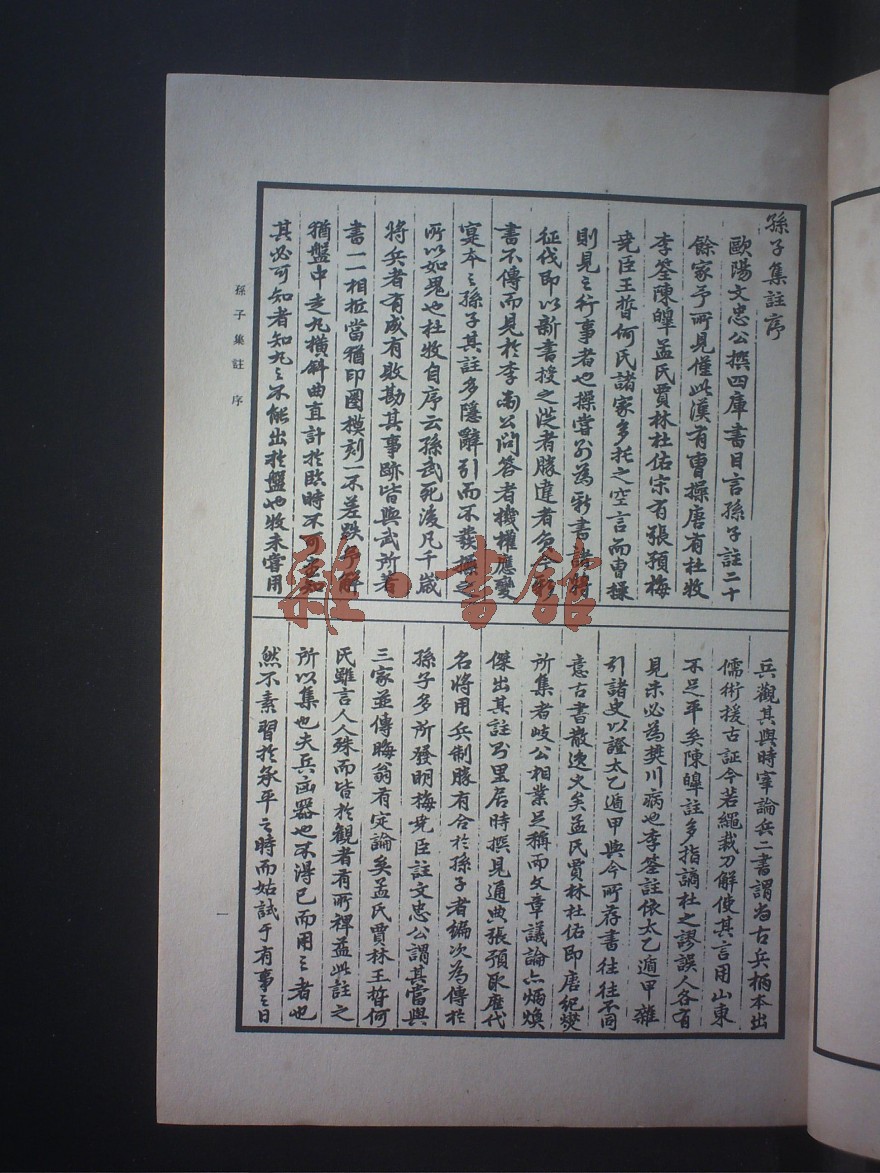 孫子集註序
歐陽文忠公撰四庫書目言孫子註二十
餘家予所見僅此漢有曹操唐有杜牧
李筌陳皥孟氏賈林杜佑宋有張預梅
堯臣王晳何氏諸家多托之空言而曹操
則見之行事者也操嘗別為新書諸將
征伐即以新書授之從者勝違者負今新
書不傳而見於李衛公問答者機權應變
寔本之孫子其註多隱辭引而不發操之
所以如鬼也杜牧自序云孫武死後凡千歲
將兵者有成有敗勘其事跡皆與武所著
書一一相抵當猶印圈模刻一不差跌
猶盤中走丸橫斜曲直計於臨時不可盡知
其必可知者知丸之不能出於盤也牧未嘗用
兵觀其與時宰論兵二書謂為古兵柄本出
儒術援古証今若繩裁刀解使其言用山東
不足平矣陳皥註多指謫杜之謬誤人各有
見未必為樊川病也李筌註依太乙遁甲雜
引諸史以證太乙遁甲與今所存書往往不同
意古書散逸久矣孟氏賈林杜佑即唐紀燮
所集者岐公相業足稱而文章議論亦炳煥
傑出其註乃里居時撰見通典張預取歷代
名將用兵制勝有合於孫子者編次為傳於
孫子多所發明梅堯臣註文忠公謂其當與
三家並傳晦翁有定論矣孟氏賈林王晳何
氏雖言人人殊而皆於觀者有所裨益此註之
所以集也夫兵凶器也不得已而用之者也
然不素習於承平之時而姑試于有事之日
孫子集註 序
一
雜·書館